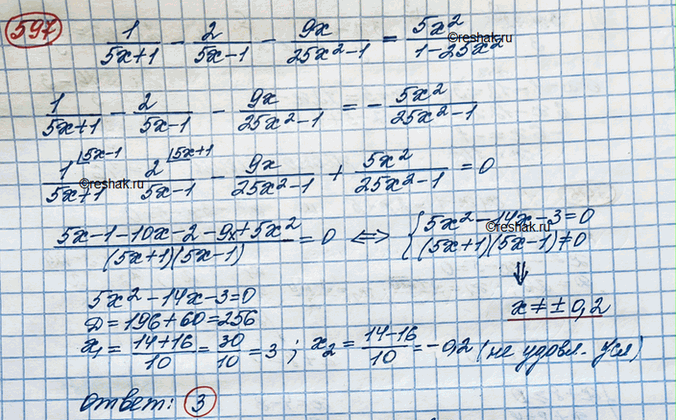 597
1/(5x+1) - 2/(5x-1) - 9x/(25x²-1) = 5x²/(1-25x²)
©reshak.ru
1/(5x+1) - 2/(5x-1) - 9x/(25x²-1) = - 5x²/(25x²-1)
1⌊5x-1/(5x+1) - 2⌊5x+1/(5x-1) - 9x/(25x²-1) + 5x²/(25x²-1) = 0
©reshak.ru
(5x-1-10x-2-9x+5x²)/((5x+1)(5x-1)) = 0 ⟺ { 5x²-14x-3=0
(5x+1)(5x-1)≠0
©reshak.ru
⇓
5x²-14x-3=0
x≠±0,2
D=196+60=256
x₁ = (14+16)/10 = 30/10 = 3 ; x₂ = (14-16)/10 = -0,2 (не удовл. усл)
Ответ: 3